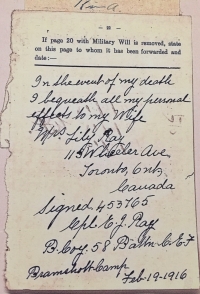 — 22 —
If page 20 with Military Will is removed, state
on this page to whom it has been forwarded and
date :—
In the event of my death
I bequeath all my personal
effects to my Wife
Mrs Lily Ray
115 Wheeler Ave
Toronto, Ont,
Canada
Signed 453765
Cpl E. J. Ray
B. Coy. 58 Battn. C.E.F
Bramshott Camp
Feb-19-1916